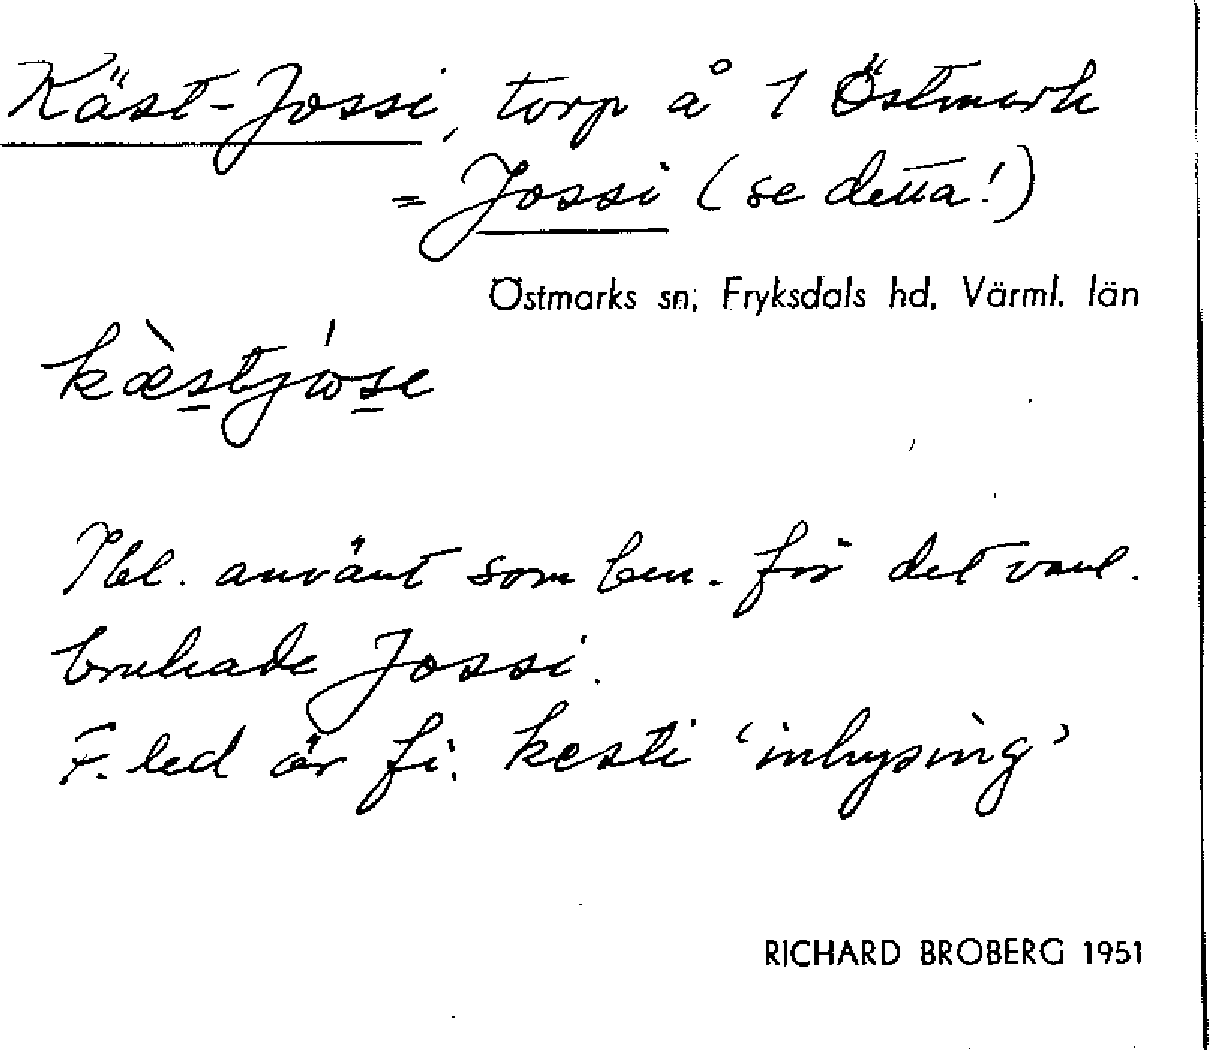 Käst-Jossi, torp å 1 Östmark
= Jossi (se detta!)
Östmarks sn; Fryksdals hd, Värml. län
kæ̀stjóse
Ibl. använt som ben. för det vanl.
brukade Jossi.
F. led är fi. kesti 'inhysing'
RICHARD BROBERG 1951